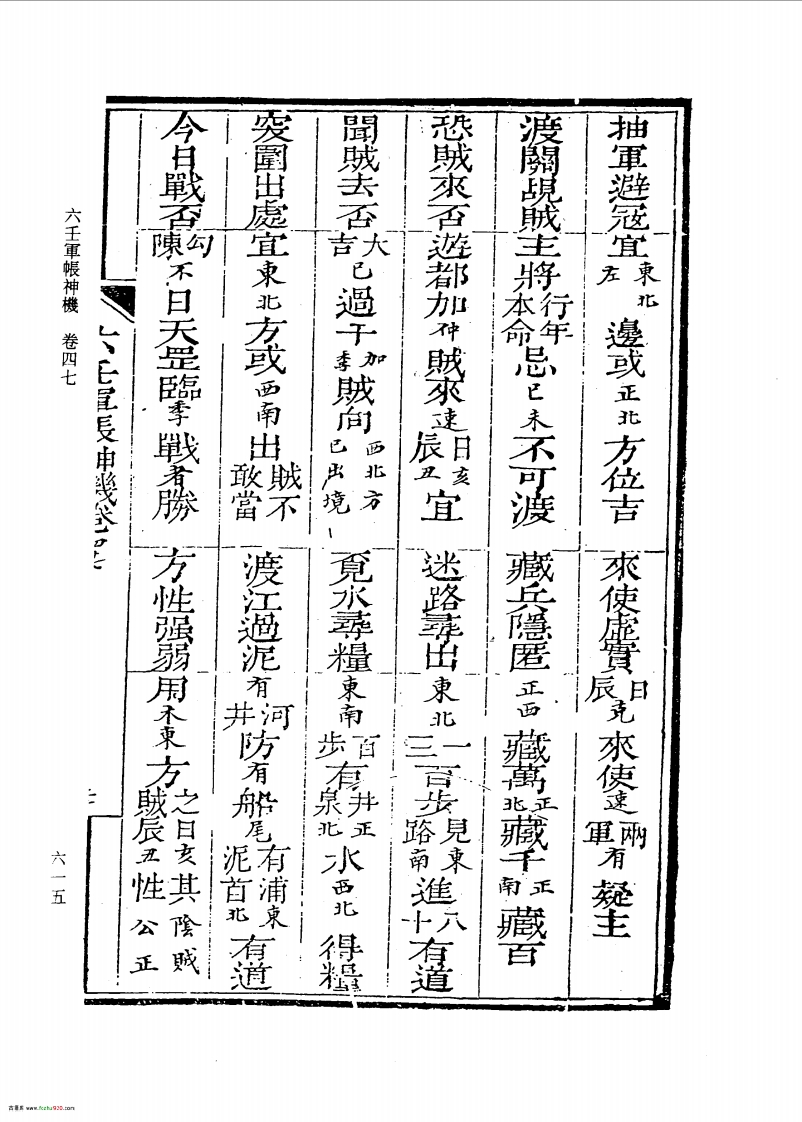 抽軍避冦宜東北左邊或正北方位吉
來使虛實日辰克來使速兩軍有疑主
渡關覘賊主將行年本命忌巳未不可渡
藏兵隱匿正西藏萬正北藏千正南藏百
恐賊來否遊都加仲賊來速日辰亥丑宜
迷路尋出東北一三百步見東路南進八十有道
聞賊去否大吉已過干加季賊向西北方已出境
覓水尋糧東南百步有井泉正北水西北得糧
突圍出處宜東北方或西南出賊不敢當
渡江過泥有河井防有船尾有浦泥首東北有道
今日戰否勾陳不日天罡臨季戰者勝
方性强弱用禾東方之賊日辰亥丑其性陰賊公正
六壬軍帳神機卷四七
六壬軍帳神機 卷四七
六一五
古書庫 www.fozhu920.com